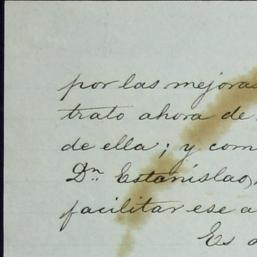 por las mejoras
trato ahora de
de ella; y com
Dn Estanislao,
facilitar ese a
Es